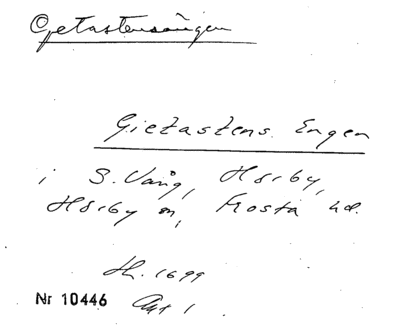 Getastensängen
Gietastens Engen
i S. Vång, Hörby,
Hörby sn, Frosta hd.
Jb. 1699
Nr 10446 Akt 1